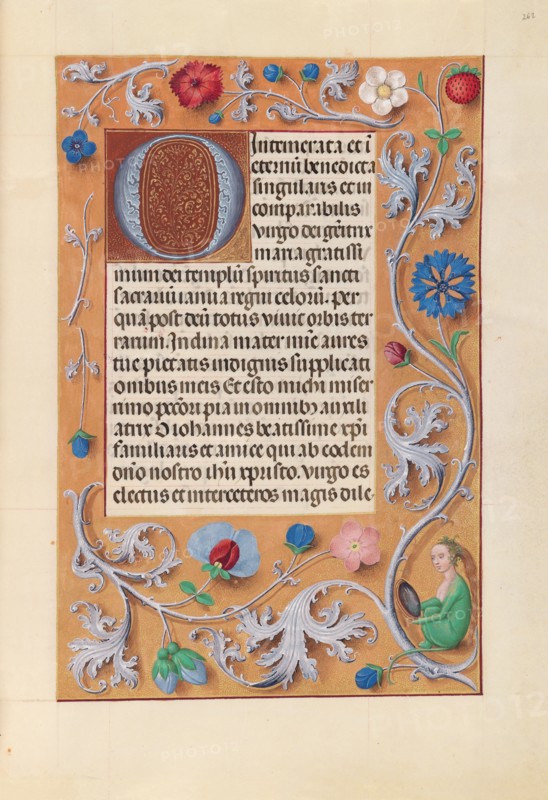 262
O Intemerata et ī
eternū benedicta
singularis et in
comparabilis
virgo dei gēitrix
maria gratissi
mum dei templū spiritus sancti
sacrariū ianua regni celorū. per
quā post deū totus vivit orbis ter
rarum Inclina mater mīe aures
tue pietatis indignis supplicati
onibus meis Et esto michi miser
rimo peccōri pia in omnibꝫ auxili
atrix O iohannes beatissime xp̄i
familiaris et amice qui ab eodem
dn̄o nostro ihū xpristo. virgo es
electus et inter ceteros magis dile
PHOTO12